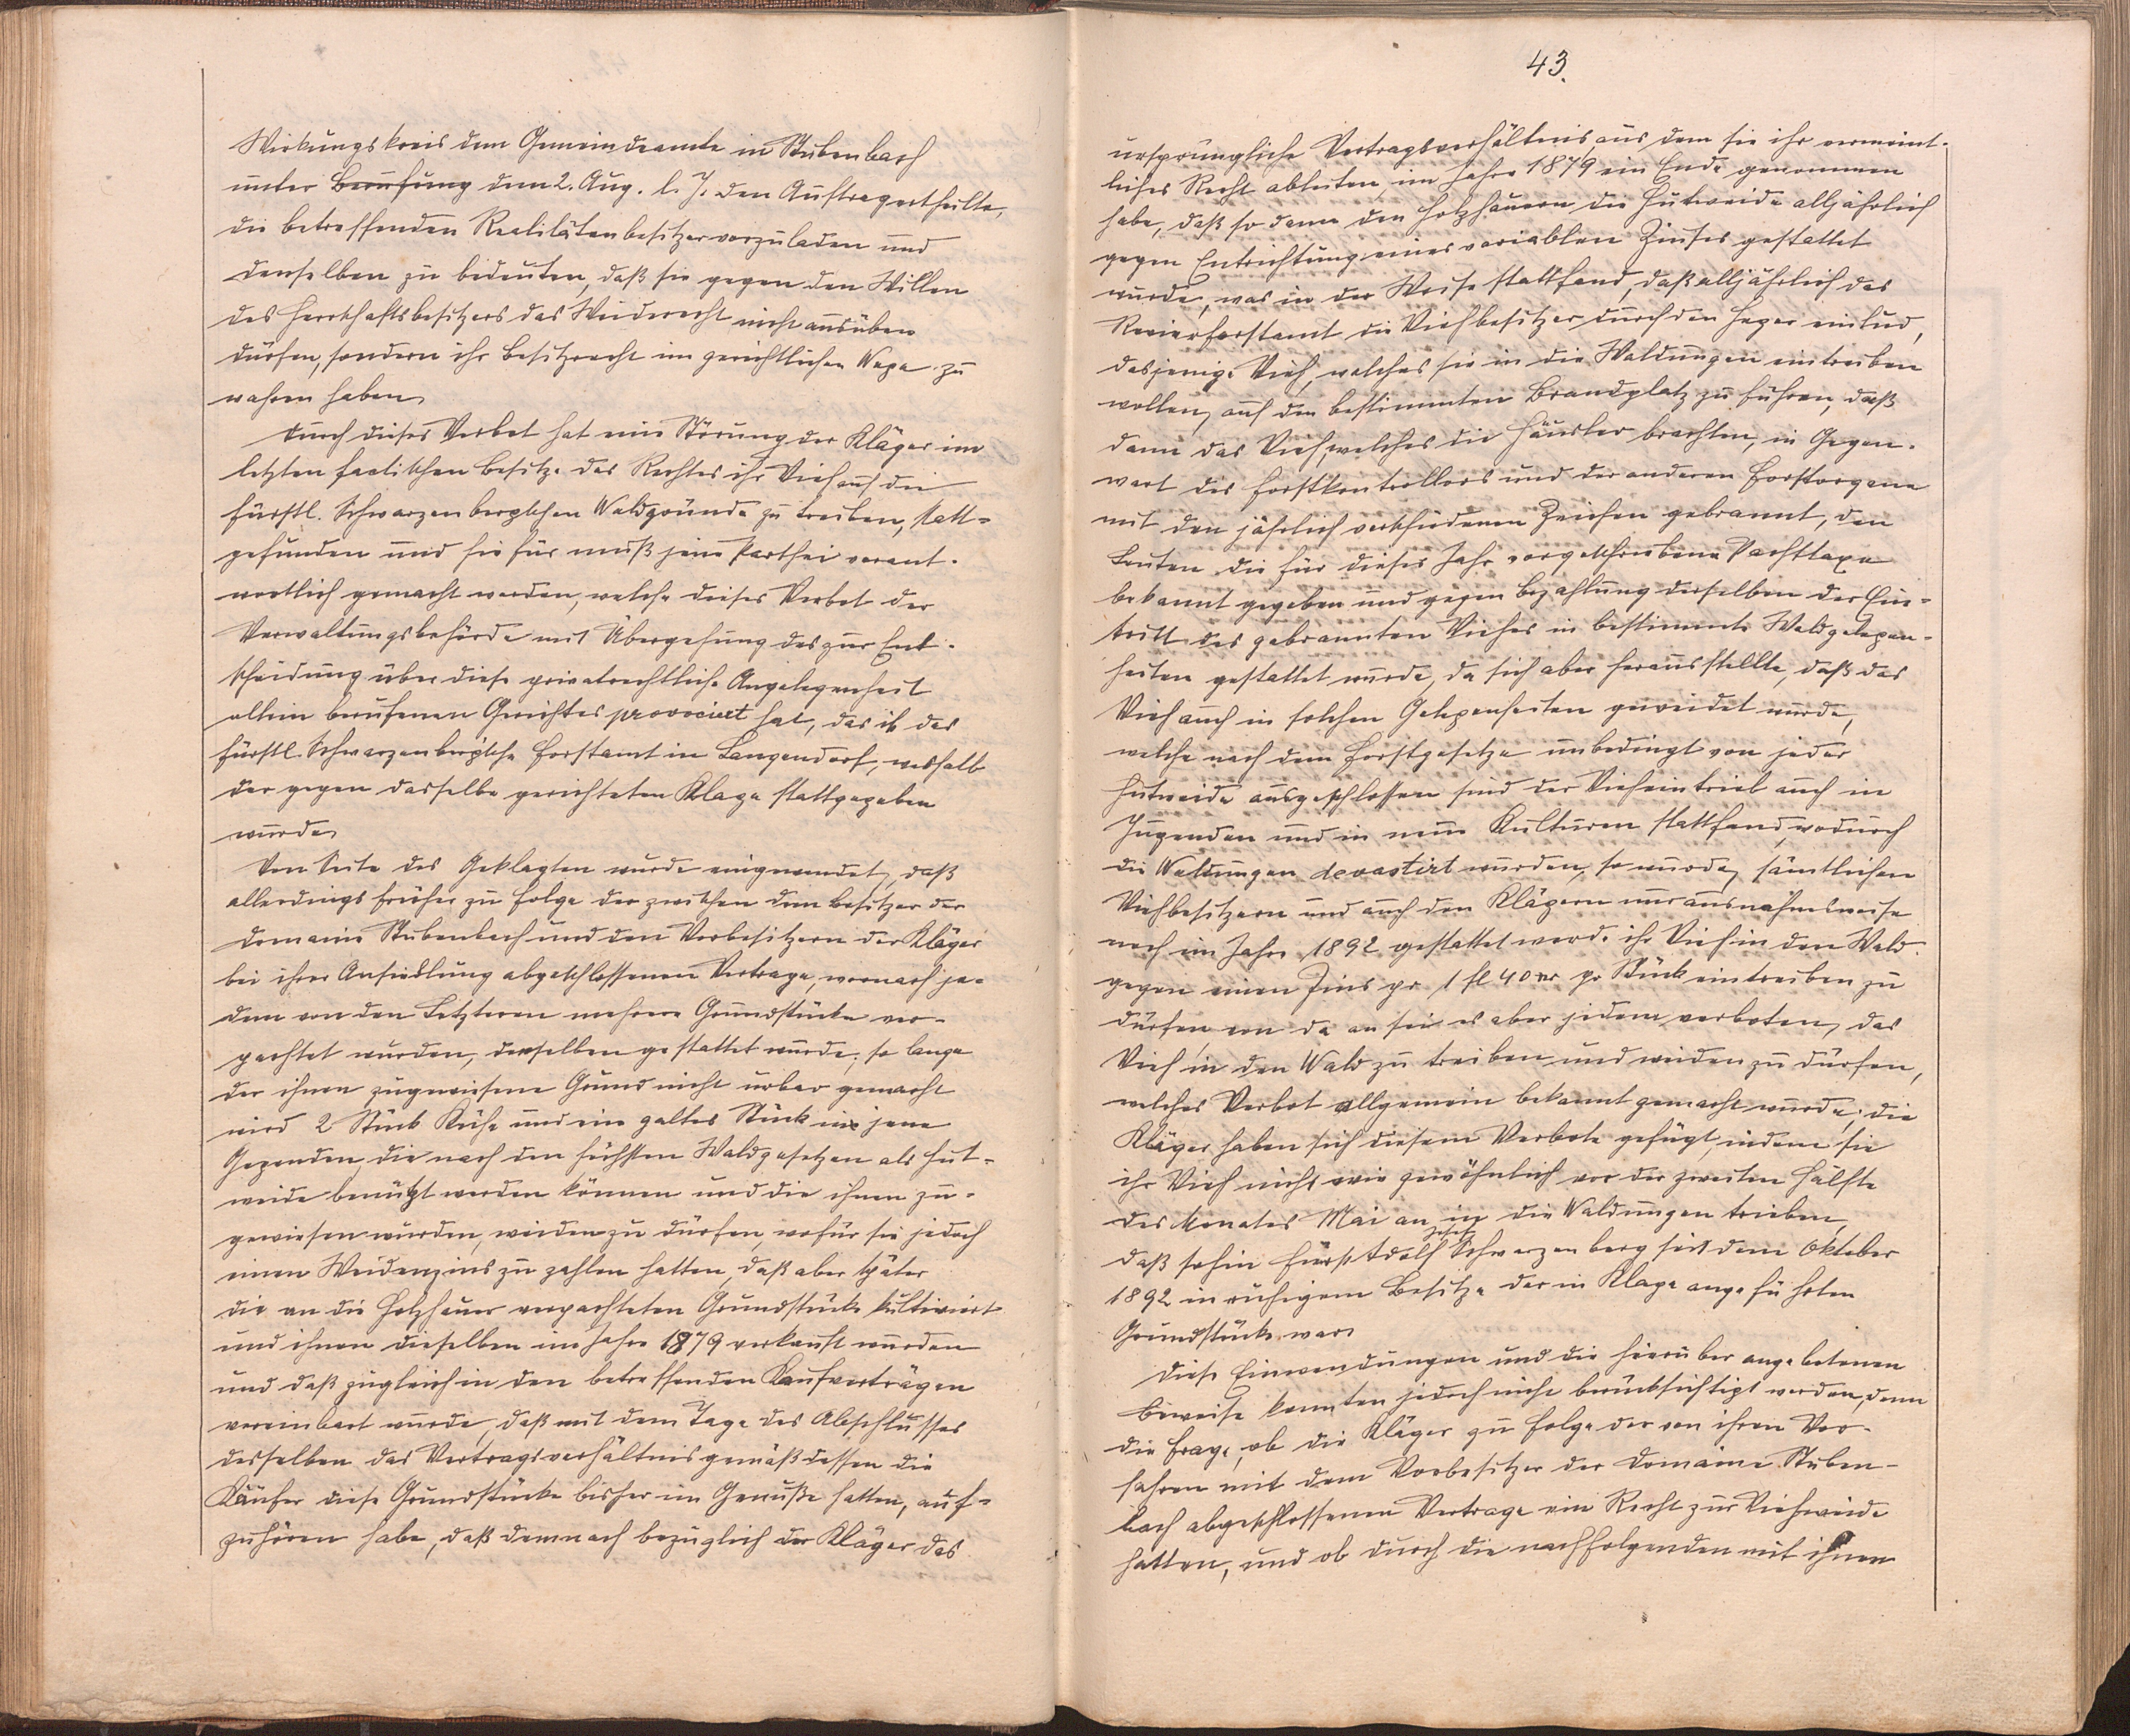 Wirkungskreis dem Gemeindeamte in Stubenbach
unter Berufung dem 2. Aug. l. J. den Auftrag ertheilte,
die betreffenden Realitätenbesitzer vorzuladen und
denselben zu bedeuten, daß sie gegen den Willen
des Herrschaftsbesitzers das Weiderecht nicht ausüben
dürfen, sondern ihr Besitzrecht im gerichtlichen Wege zu
wahren haben.
Durch dieses Verbot hat eine Störung der Kläger im
letzten factischen Besitze des Rechtes ihr Vieh auf die
fürstl. Schwarzenbergschen Waldgründe zu treiben, statt-
gefunden und hiefür muß jene Parthei verant-
wortlich gemacht werden, welche dieses Verbot der
Verwaltungsbehörde mit Übergehung des zur Ent-
scheidung über diese privatrechtliche Angelegenheit
allein berufenen Gerichtes provociert hat, das ist das
fürstl. Schwarzenbergsche Forstamt in Langendorf, weshalb
der gegen dasselbe gerichteten Klage stattgegeben
wurde.
Von Seite des Geklagten wurde eingewendet, daß
allerdings früher zu Folge der zwischen dem Besitzer der
Domaine Stubenbach und den Vorbesitzern der Kläger
bei ihrer Ansiedlung abgeschlossenen Vertrage, wornach je-
dem von den Letzteren mehrere Grundstücke ver-
pachtet wurden, denselben gestattet wurde, so lange
der ihnen zugewiesene Grund nicht urbar gemacht
wird 2 Stück Kühe und ein galtes Stück in jene
Gegenden, die nach den höchsten Waldgesetzen als Hut-
weide benützt werden können und die ihnen zu-
gewiesen wurden, weiden zu dürfen, wofür sie jedoch
einen Weidenzins zu zahlen hatten, daß aber später
die an die Holzhauer verpachteten Grundstücke kultiviert
und ihnen dieselben im Jahre 1879 verkauft wurden
und daß zugleich in den betreffenden Kaufverträgen
vereinbart wurde, daß mit dem Tage des Abschlusses
desselben das Vertragsverhältnis gemäß dessen die
Käufer diese Grundstücke bisher im Genuße hatten, auf-
zuhören habe, daß demnach bezüglich der Kläger das
43.
ursprüngliche Vertragsverhältnis, aus dem sie ihr vermeint-
liches Recht ableiten, im Jahre 1879 ein Ende genommen
habe, daß so dann den Holzhauern die Hutweide alljährlich
gegen Entrichtung eines variablen Zinses gestattet
wurde, was in der Weise stattfand, daß alljährlich das
Revierforstamt die Viehbesitzer durch den Heger einlud,
dasjenige Vieh, welches sie in die Waldungen eintreiben
wollen, auf den bestimmten Brandplatz zu führen, daß
dann das Vieh, welches die Häusler brachten, in Gegen-
wart des Forstkontrollors und der anderen Forstorgane
mit den jährlich verschiedenen Zeichen gebrannt, den
Leuten die für dieses Jahr vorgeschriebene Pachttaxe
bekannt gegeben und gegen Bezahlung derselben der Ein-
tritt des gebrannten Viehes in bestimmte Waldgelegen-
heiten gestattet wurde, da sich aber herausstellte, daß das
Vieh auch in solchen Gelegenheiten geweidet wurde,
welche nach dem Forstgesetze unbedingt von jeder
Hutweide ausgeschlossen sind der Vieheintrieb auch in
Jugenden und in neue Kulturen stattfand, wodurch
die Waldungen devastirt wurden, so wurde, sämtlichen
Viehbesitzern und auch den Klägern nur ausnahmsweise
noch im Jahre 1892 gestattet worde ihr Vieh in den Wald
gegen einen Zins pr 1 fl 40 xr pr Stück eintreiben zu
dürfen, von da an sei es aber jedem verboten, das
Vieh in den Wald zu treiben und weiden zu dürfen,
welches Verbot allgemein bekannt gemacht wurde; die
Kläger haben sich diesem Verbote gefügt, indem sie
ihr Vieh nicht wie gewöhnlich vor der zweiten Hälfte
des Monates Mai an in die Waldungen trieben,
daß sohin Fürst Adolf Josef Schwarzenberg seit dem Oktober
1892 in ruhigem Besitze der in Klage angeführten
Grundstücke war.
Diese Einwendungen und die hierüber angebotenen
Beweise konnten jedoch nicht berücksichtigt werden, denn
die Frage, ob die Kläger zu Folge der von ihren Vor-
fahren mit dem Vorbesitzer der Domaine Stuben-
bach abgeschlossenen Vertrage ein Recht zur Viehweide
hatten, und ob durch die nachfolgenden mit ihnen